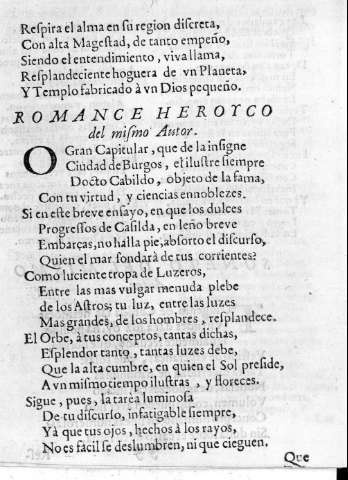 Respira el alma en su region discreta,
Con alta Magestad, de tanto empeño,
Siendo el entendimiento, viva llama,
Resplandeciente hoguera de vn Planeta,
Y Templo fabricado à vn Dios pequeño.
ROMANCE HEROYCO
del mismo Autor.
O Gran Capitular, que de la insigne
Ciudad de Burgos, el ilustre siempre
Docto Cabildo, objeto de la fama,
Con tu virtud, y ciencias ennobleçes.
Si en este breve ensayo, en que los dulces
Progressos de Casilda, en leño breve
Embarças, no halla pie, absorto el discurso,
Quien el mar fondarà de tus corrientes?
Como luciente tropa de Luzeros,
Entre las mas vulgar menuda plebe
de los Astros; tu luz, entre las luzes
Mas grandes, de los hombres, resplandece.
El Orbe, à tus conceptos, tantas dichas,
Esplendor tanto, tantas luzes debe,
Que la alta cumbre, en quien el Sol preside,
A vn mismo tiempo ilustras, y floreces.
Sigue, pues, la tarèa luminosa
De tu discurso, infatigable siempre,
Yà que tus ojos, hechos à los rayos,
No es facil se deslumbren, ni que cieguen.
Que